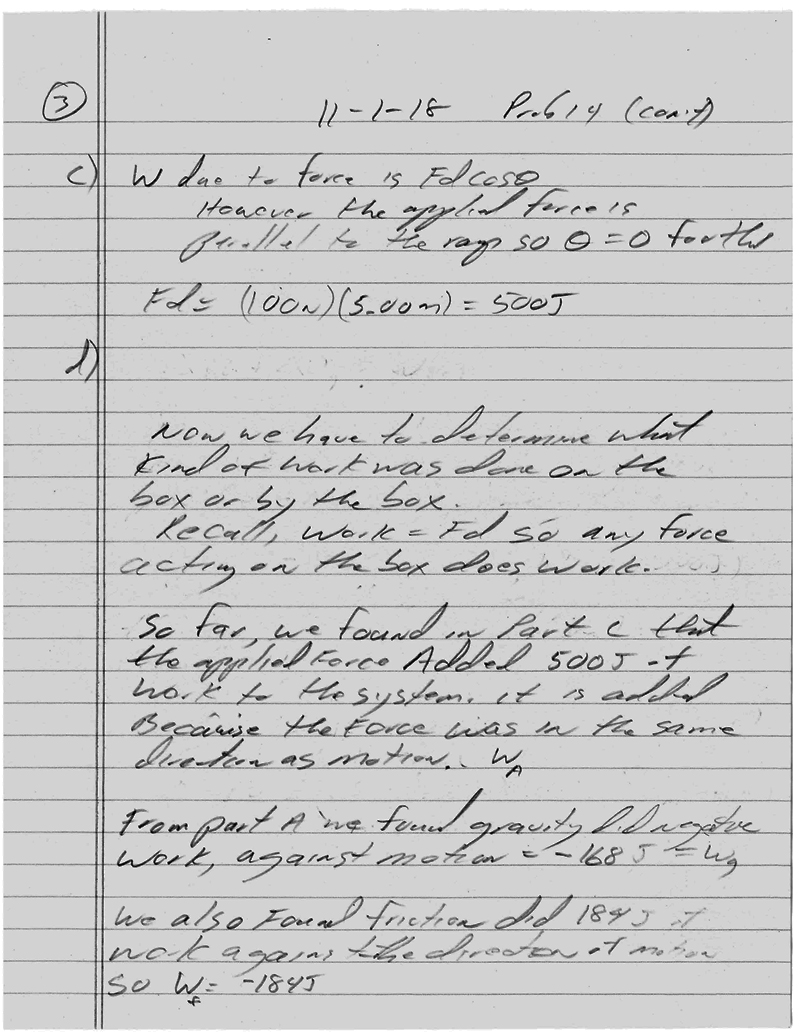 ③ 11-1-18 Prob 14 (con't)
c) W due to force is Fd cosθ
However the applied force is
parallel to the ramp so θ = 0 for this
Fd = (100N)(5.00m) = 500J
d)
Now we have to determine what
kind of work was done on the
box or by the box.
Recall, work = Fd so any force
acting on the box does work.
So far, we found in Part C that
the applied Force Added 500J of
work to the system. it is added
Because the Force was in the same
direction as motion. W_A
From part A we found gravity did negative
work, against motion = -168J = W_g
We also Found friction did 184J of
work against the direction of motion
so W_f = -184J